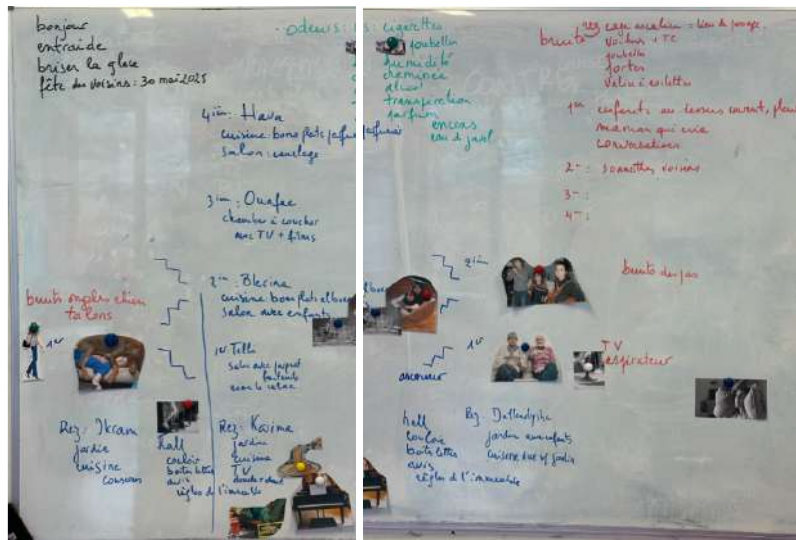 bonjour
entraide
briser la glace
fête des voisins : 30 mai 2025
odeurs :
4ièm : Hava
cuisine: bons plats
salon :
3ièm : Ouafae
chambre à coucher
avec TV + films
2ièm : Blerina
cuisine bons plats
salon avec enfants
bruits ongles chien
talons
1er Tello
salon avec
Rez : Ikram
jardin
cuisine
coussins
hall
couloir
boites lettres
avis
règles de l'immeuble
Rez : Karima
jardin
cuisine
TV
: cigarettes
poubelles
humidité
cheminée
alcool
transpiration
parfum
encens
eau de javel
bruits
rez cage escalier = lieu de passage
voitures + TC
poubelles
portes
valise à roulettes
1er enfants au dessus courent,
maman qui crie
conversations
2ièm : sonnettes voisins
3ièm :
4ièm :
2ièm
bruits des pas
1er
TV
aspirateur
ascenseur
hall
couloir
boites lettres
avis
règles de l'immeuble
Rez :
jardin avec enfants
cuisine vue s/ jardin